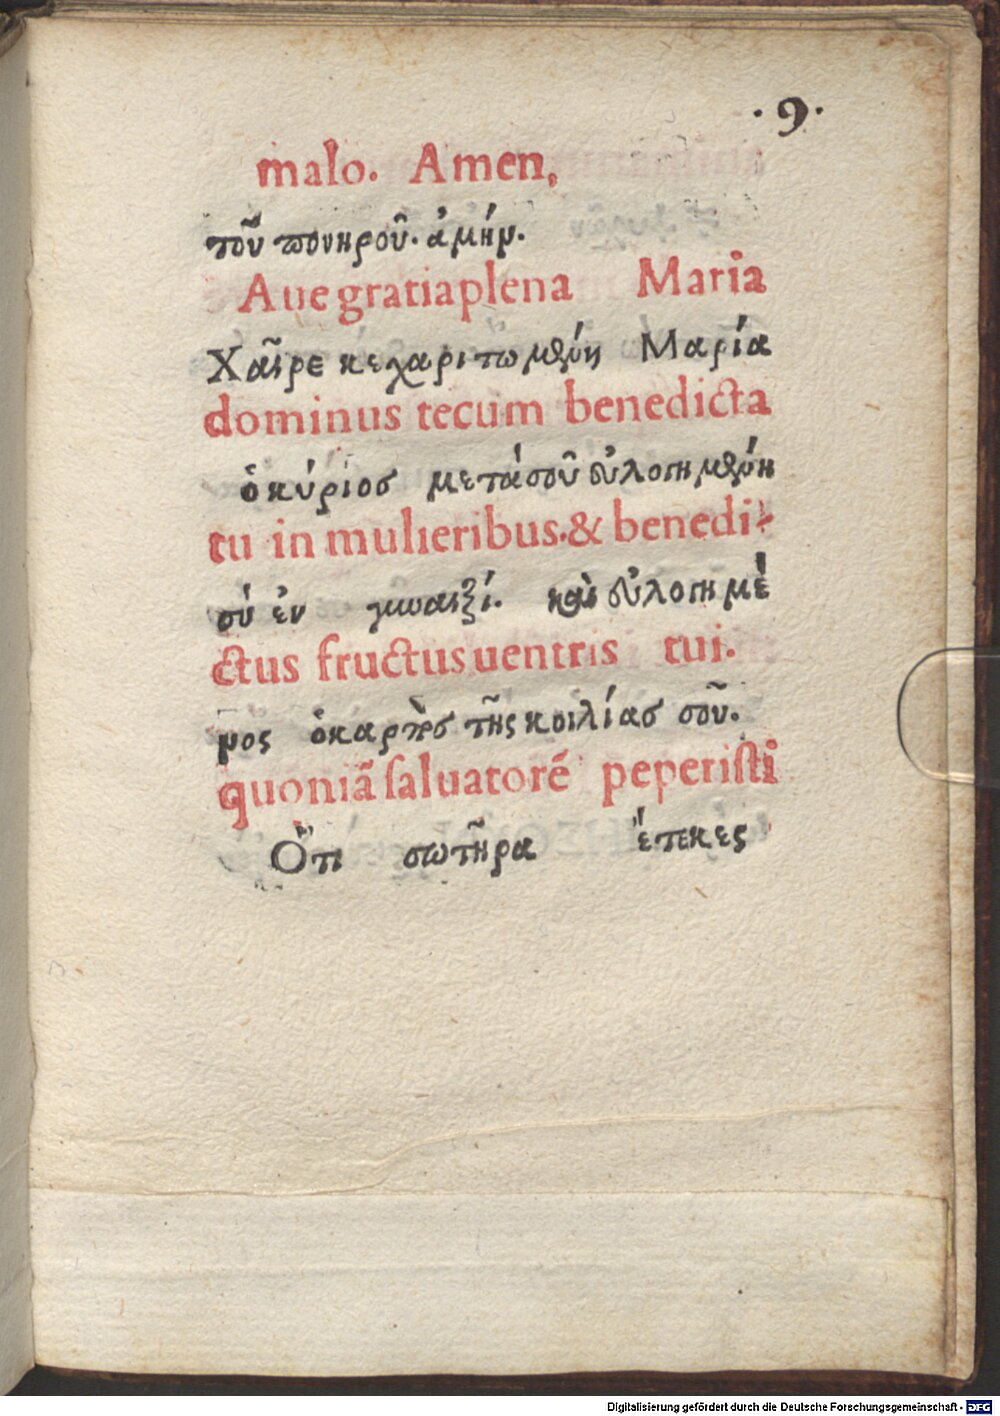 ·9·
malo. Amen,
τοῦ πονηροῦ. ἀμήν.
Aue gratiaplena Maria
Χαῖρε κεχαριτωμένη Μαρία
dominus tecum benedicta
ὁ κύριοσ μετάσοῦ εὐλογημένη
tu in mulieribus.& benedi-
σύ ἐν γυναιξί. καὶ εὐλογημέ
ctus fructus uentris tui.
μος ὁ καρπὸσ τῆς κοιλίασ σοῦ.
quoniã saluatorẽ peperisti
Ὅτι σωτῆρα ἔτεκες
Digitalisierung gefördert durch die Deutsche Forschungsgemeinschaft - DFG